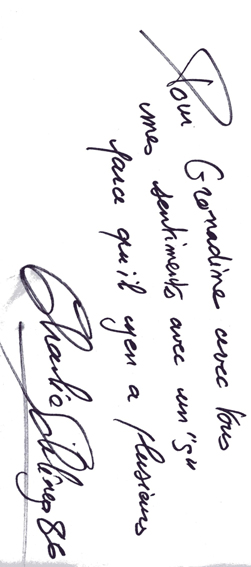 Pour Grenadine avec tous
mes sentiments avec un "s"
parce qu'il y en a plusieurs
Charlie Schlingo 86